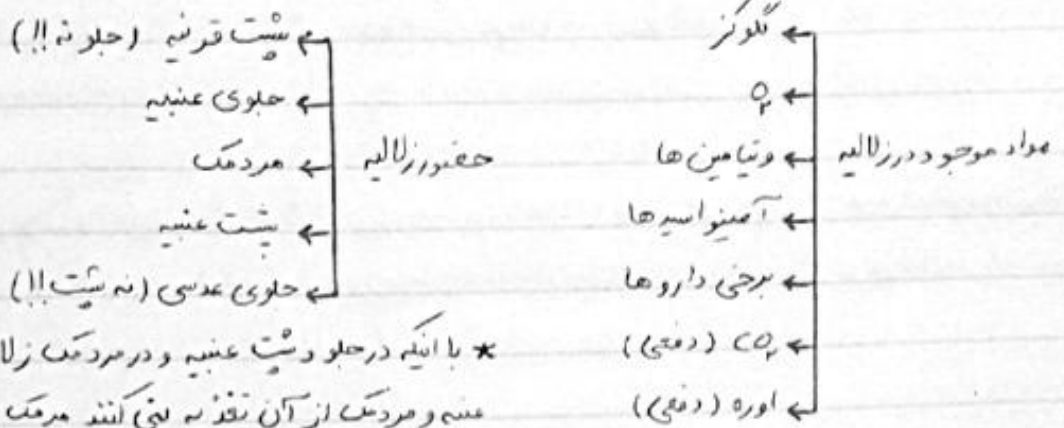 مواد موجود در زلالیه
گلوکز
O₂
ویتامین ها
آمینواسیدها
برخی داروها
CO₂ (دفعی)
اوره (دفعی)
حضور زلالیه
پشت قرنیه (جلو نه !!)
جلوی عنبیه
مردمک
پشت عنبیه
جلوی عدسی (نه پشت !!)
* با اینکه در جلو و پشت عنبیه و در مردمک زلا
عنبیه و مردمک از آن تغذیه نمی کنند مردمک